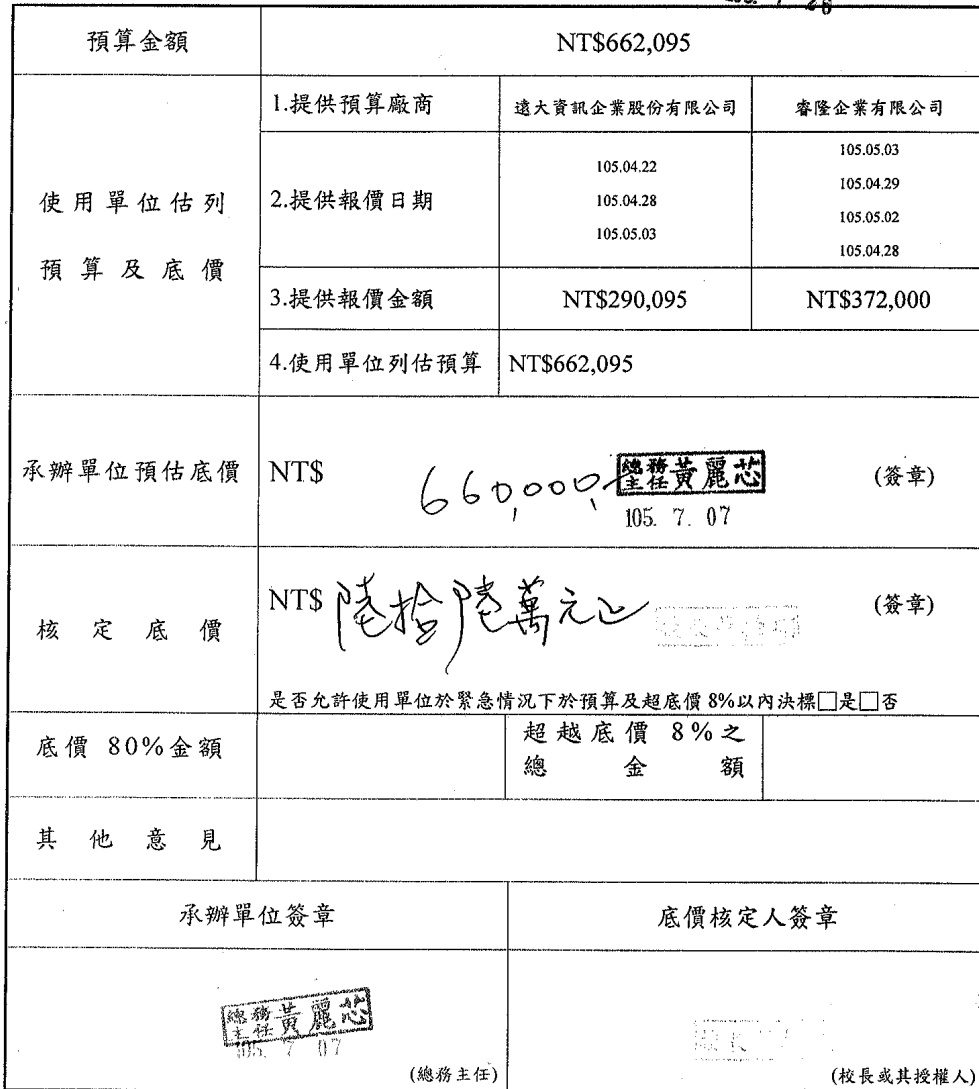 預算金額
NT$662,095
使用單位估列
預算及底價
1.提供預算廠商
遠大資訊企業股份有限公司
睿隆企業有限公司
2.提供報價日期
105.04.22
105.04.28
105.05.03
105.05.03
105.04.29
105.05.02
105.04.28
3.提供報價金額
NT$290,095
NT$372,000
4.使用單位列估預算
NT$662,095
承辦單位預估底價
NT$ 660,000,-
總務主任 黃麗芯
105. 7. 07
(簽章)
核定底價
NT$ 陸拾陸萬元正
(簽章)
是否允許使用單位於緊急情況下於預算及超底價 8%以內決標□是□否
底價 80%金額
超越底價 8%之
總金額
其他意見
承辦單位簽章
底價核定人簽章
總務主任 黃麗芯
105. 7 07
(總務主任)
(校長或其授權人)